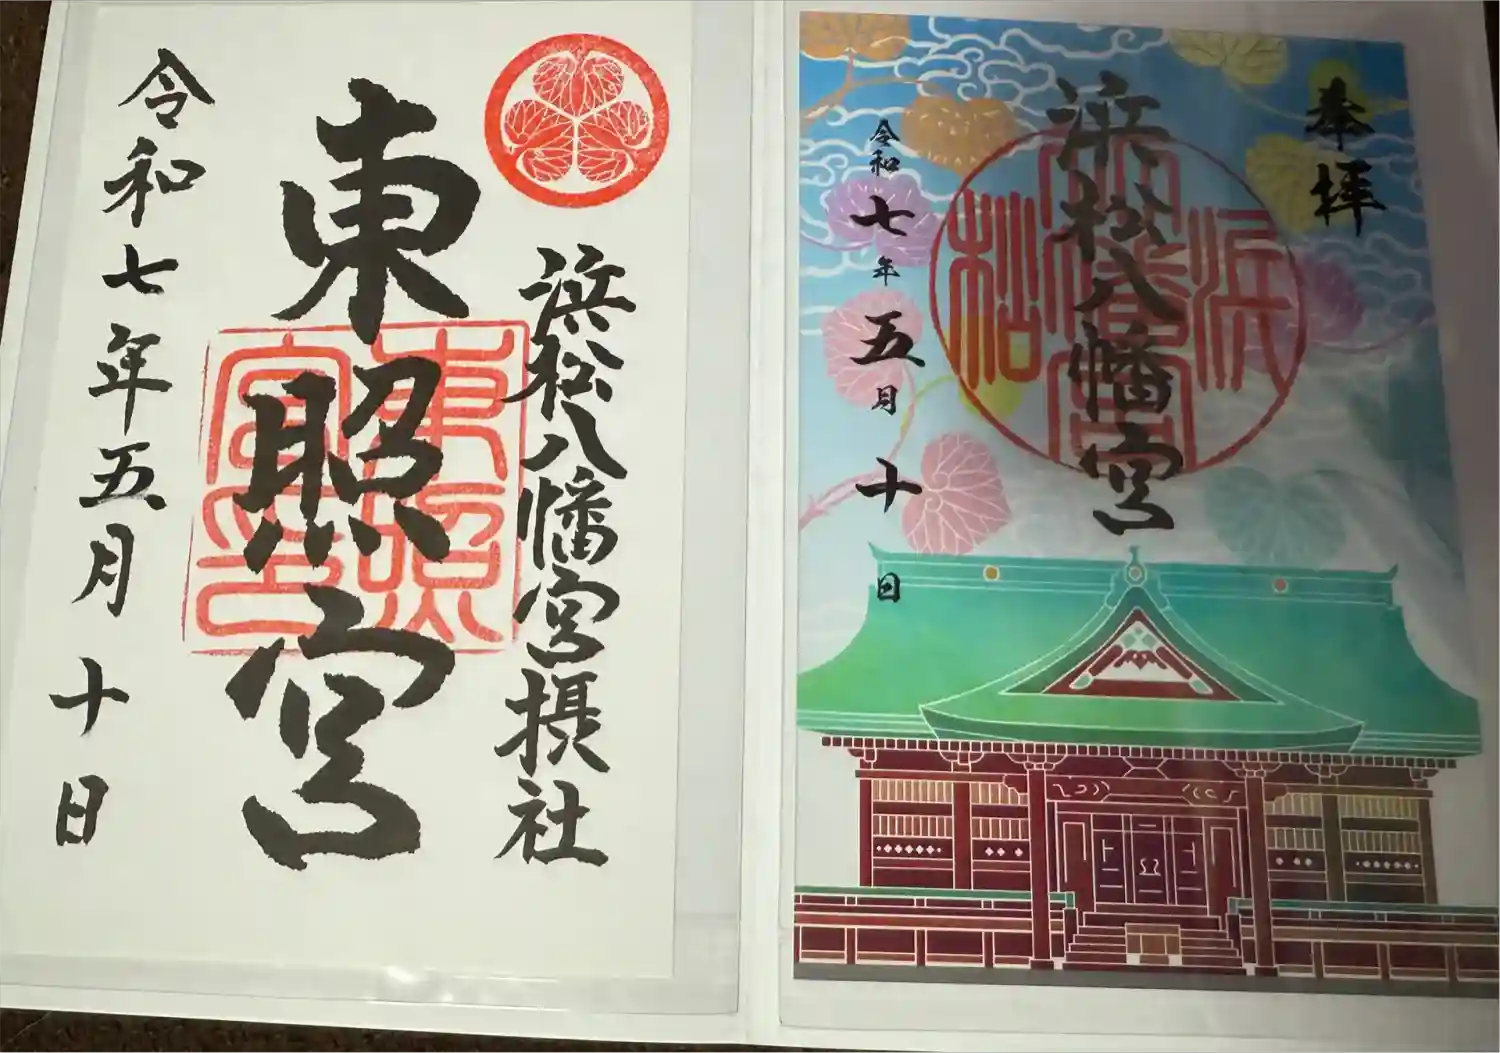 奉拝
浜松八幡宮
浜松八幡宮
令和七年五月十日
浜松八幡宮摂社
東照宮
東照宮印
令和七年五月十日